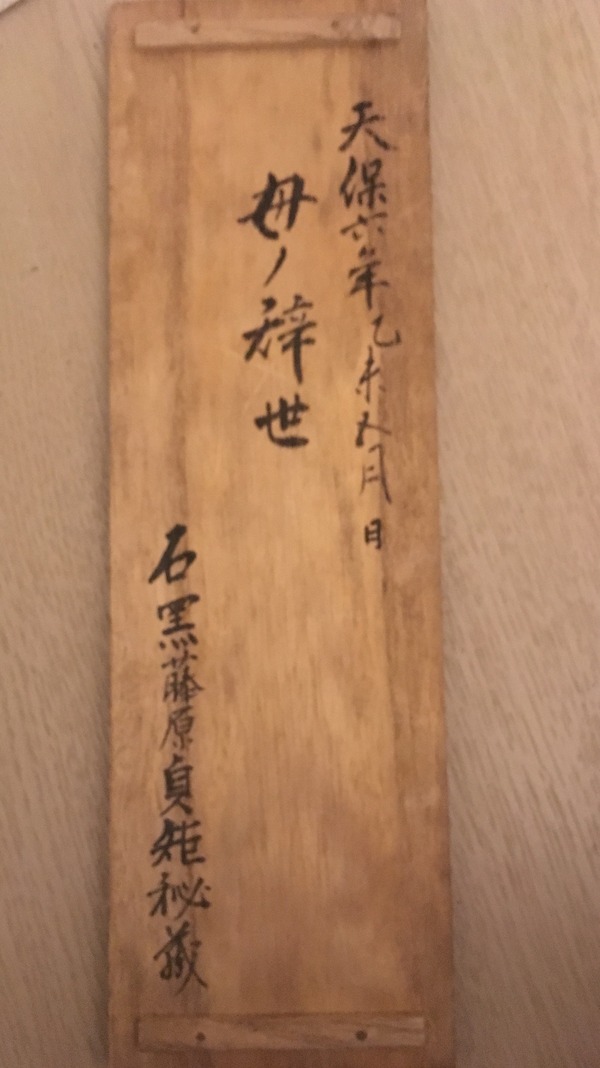 天保六年乙未五月日
母ノ辞世
石黒藤原貞矩秘蔵